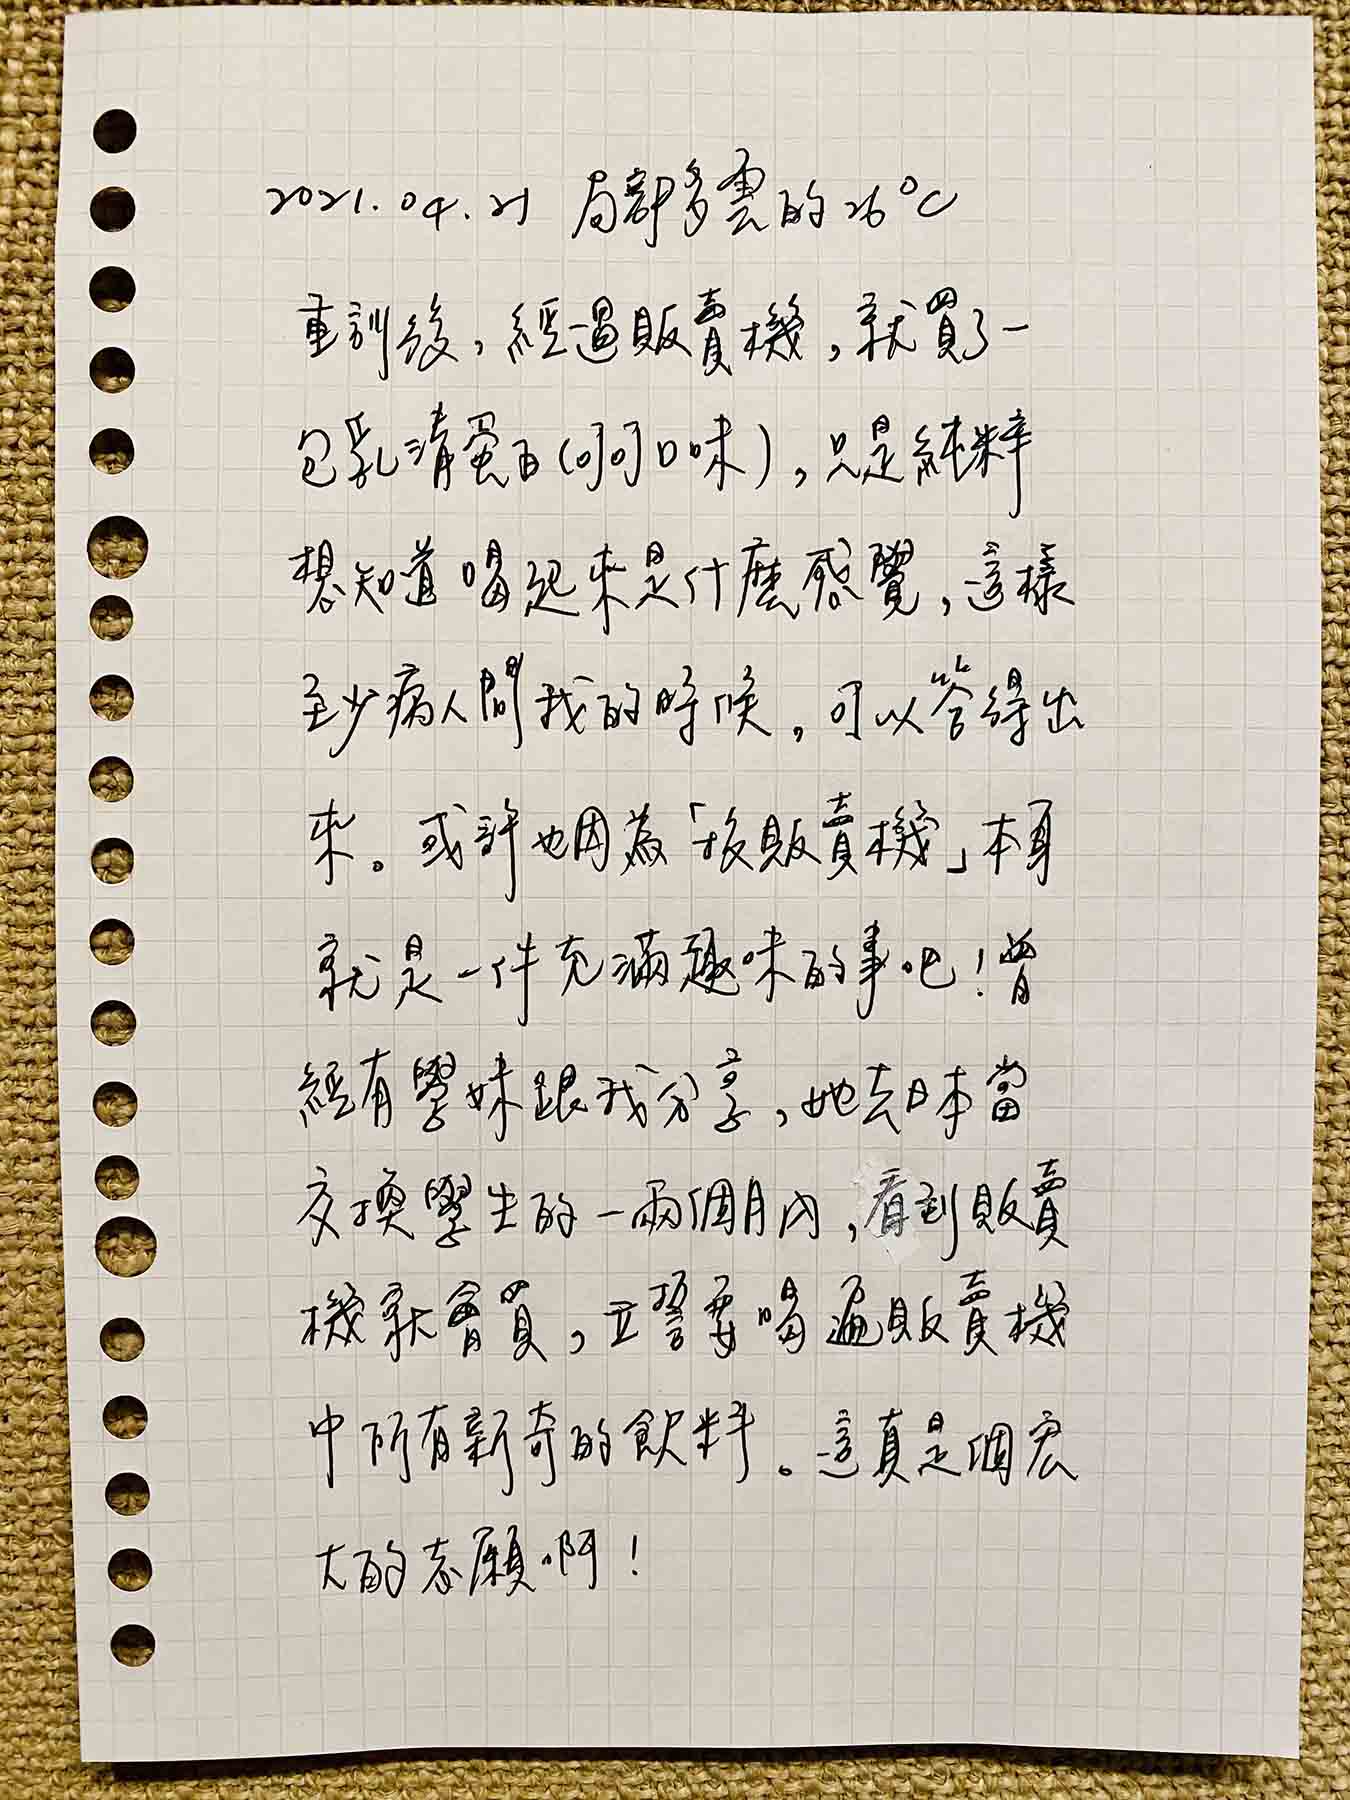 2021.04.21 局部多雲的26°C
重訓後，經過販賣機，就買了一
包乳清蛋白(可可口味)，只是純粹
想知道喝起來是什麼感覺，這樣
至少病人問我的時候，可以答得出
來。或許也因為「投販賣機」本身
就是一件充滿趣味的事吧！曾
經有學妹跟我分享，她去日本當
交換學生的一兩個月內，看到販賣
機就會買，立誓要喝遍販賣機
中所有新奇的飲料。這真是個宏
大的志願啊！